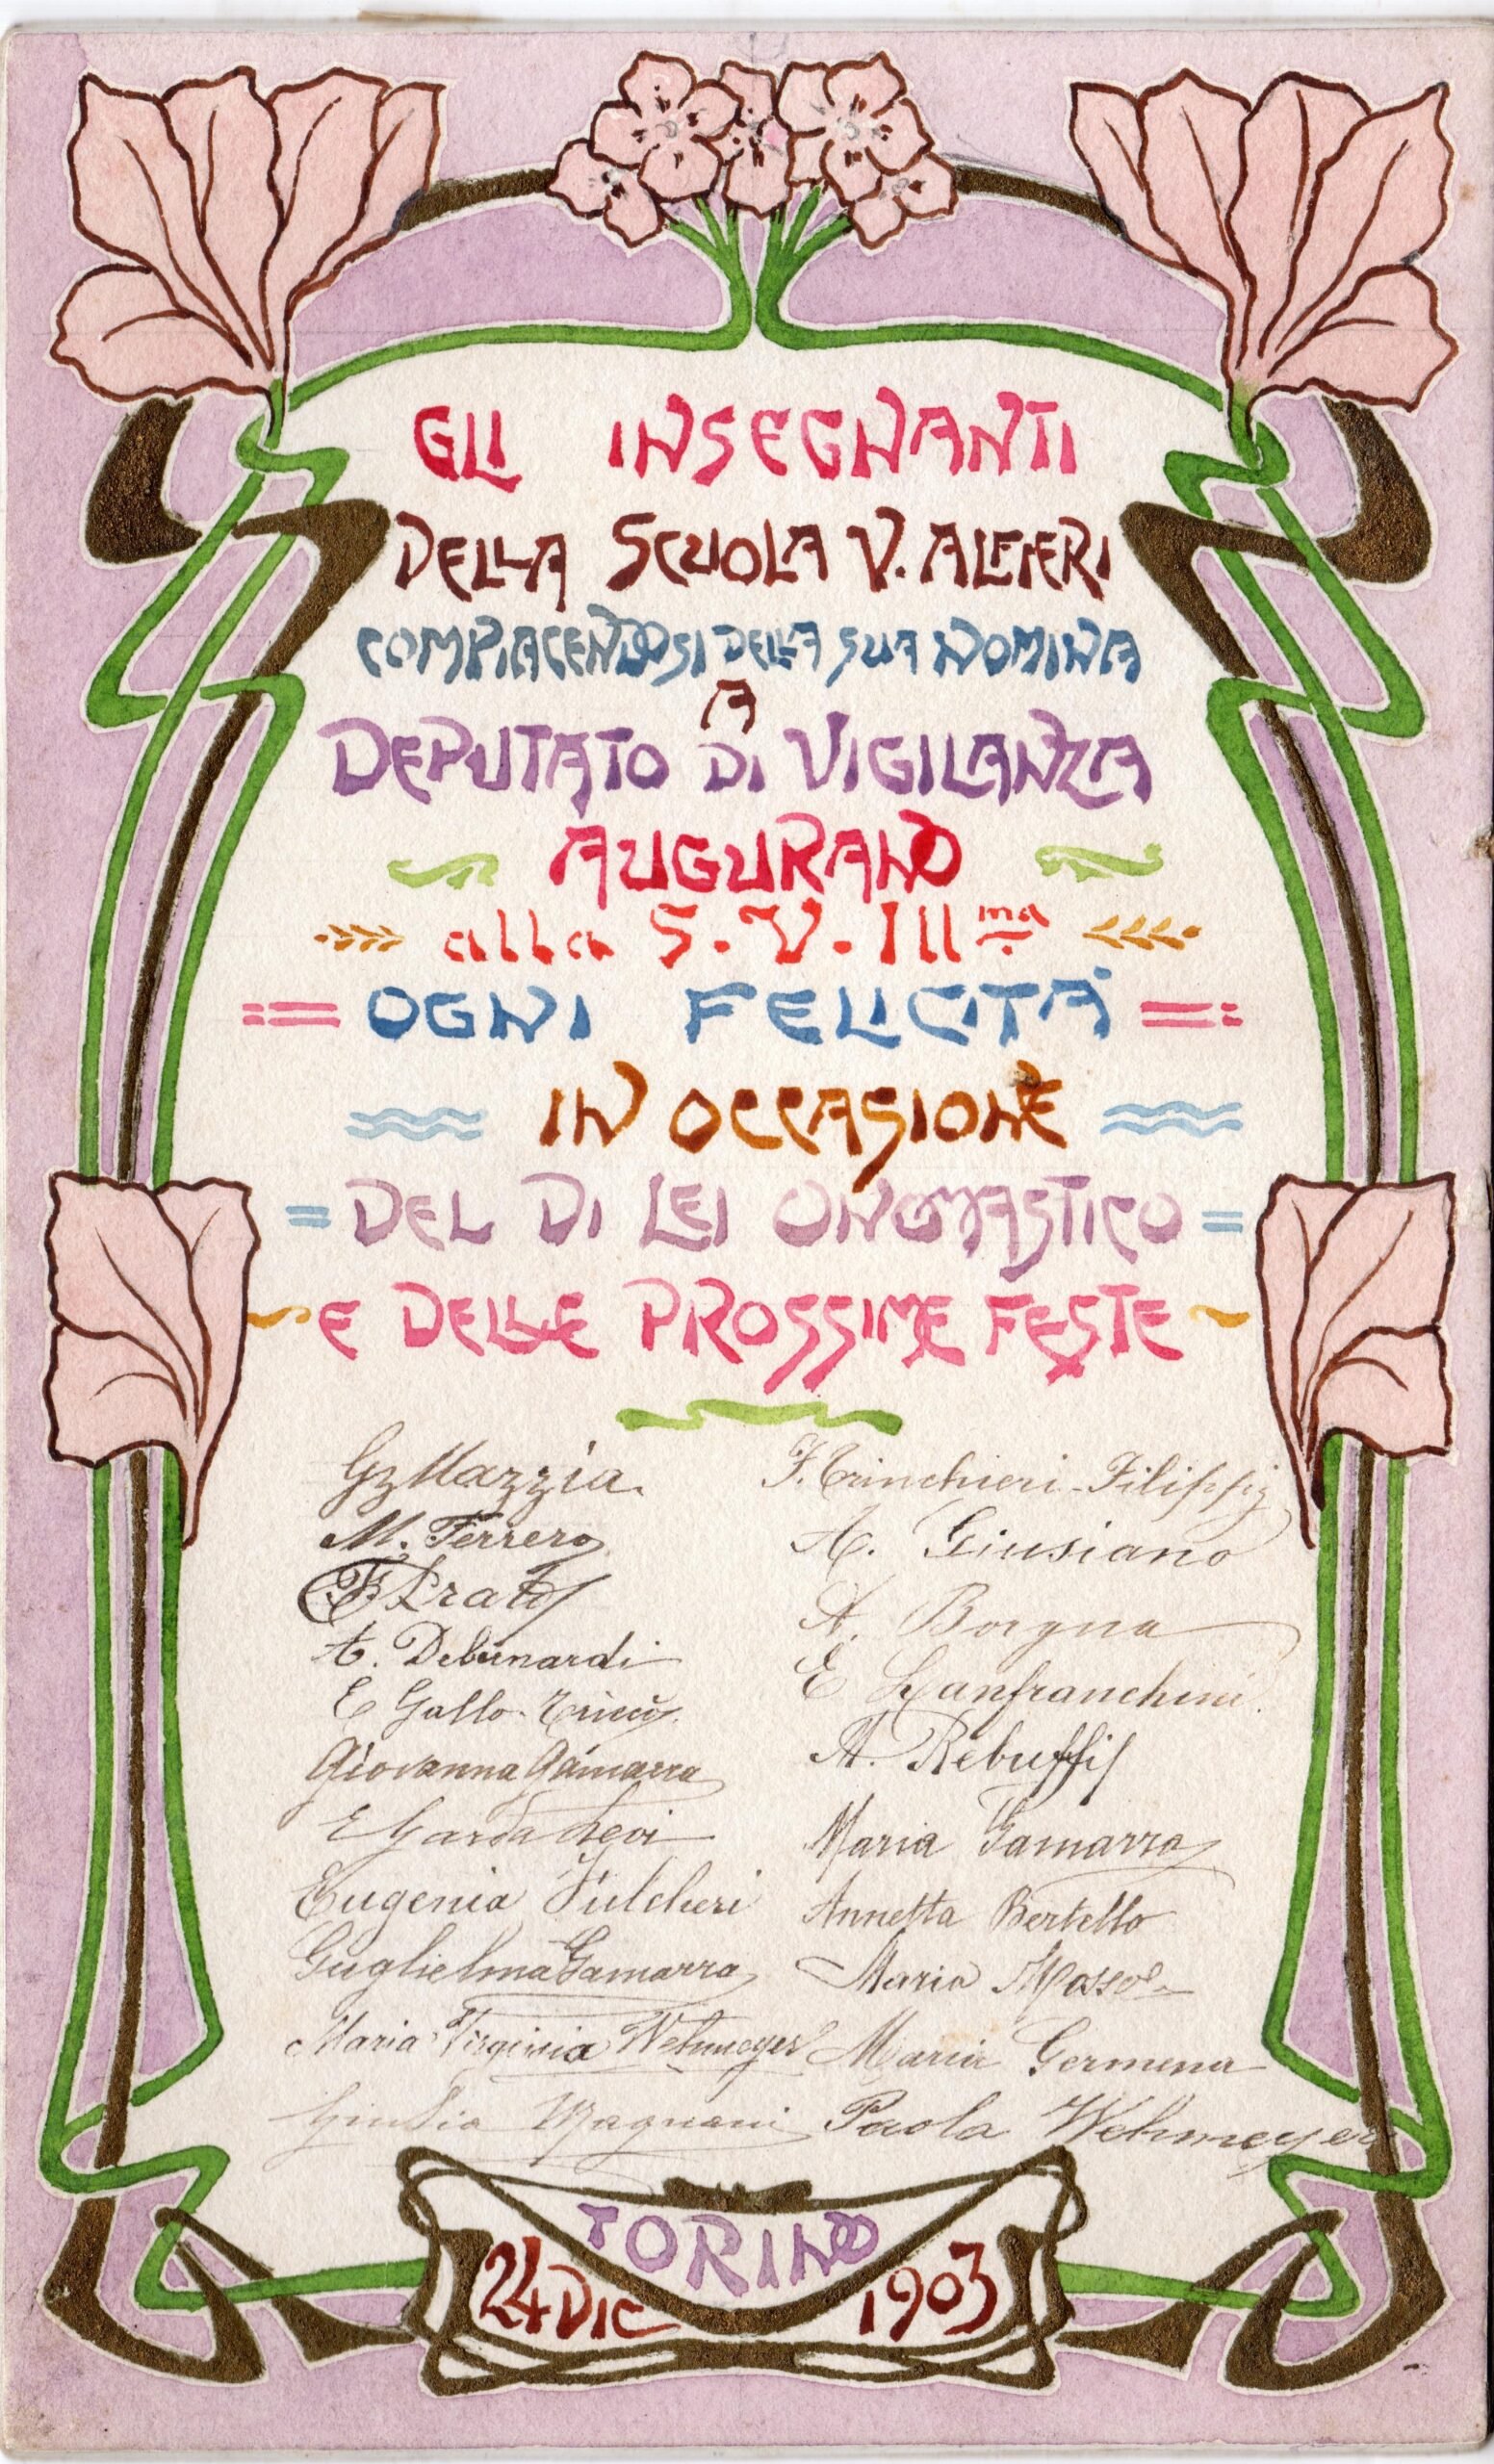 GLI INSEGNANTI
DELLA SCUOLA V. ALFIERI
COMPIACENDOSI DELLA SUA NOMINA
A
DEPUTATO DI VIGILANZA
AUGURANO
alla S. V. Ill.ma
OGNI FELICITÀ
IN OCCASIONE
DEL DI LEI ONOMASTICO
E DELLE PROSSIME FESTE
Mazzia
M. Ferrero
Prato
A. Debernardi
E Gallo
Giovanna Gamarra
E Garda Levi
Eugenia Fulcheri
Guglielma Gamarra
Maria Virginia Wehmeyer
Giulia Magnani
F. Trinchieri-Filippi
Giusiano
A. Borgna
E Lanfranchini
A. Rebuffi
Maria Gamarra
Annetta Bertello
Maria Mosso
Maria Germena
Paola Wehmeyer
TORINO
24 DIC 1903